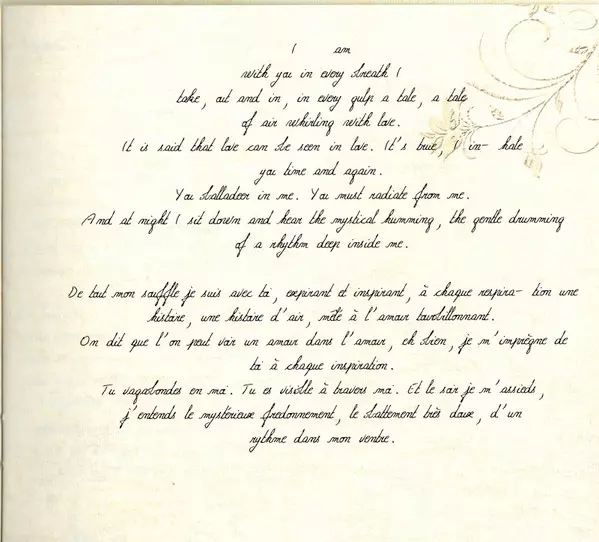 I am
with you in every breath I
take, out and in, in every gulp a tale, a tale
of air whirling with love.
It is said that love can be seen in love. It's true, I in- hale
you time and again.
You balladeer in me. You must radiate from me.
And at night I sit down and hear the mystical humming, the gentle drumming
of a rhythm deep inside me.
De tout mon souffle je suis avec toi, expirant et inspirant, à chaque respira- tion une
histoire, une histoire d'air, mêlé à l'amour tourbillonnant.
On dit que l'on peut voir un amour dans l'amour, eh bien, je m'imprègne de
toi à chaque inspiration.
Tu vagabondes en moi. Tu es visible à travers moi. Et le soir je m'assieds,
j'entends le mystérieux fredonnement, le battement très doux, d'un
rythme dans mon ventre.